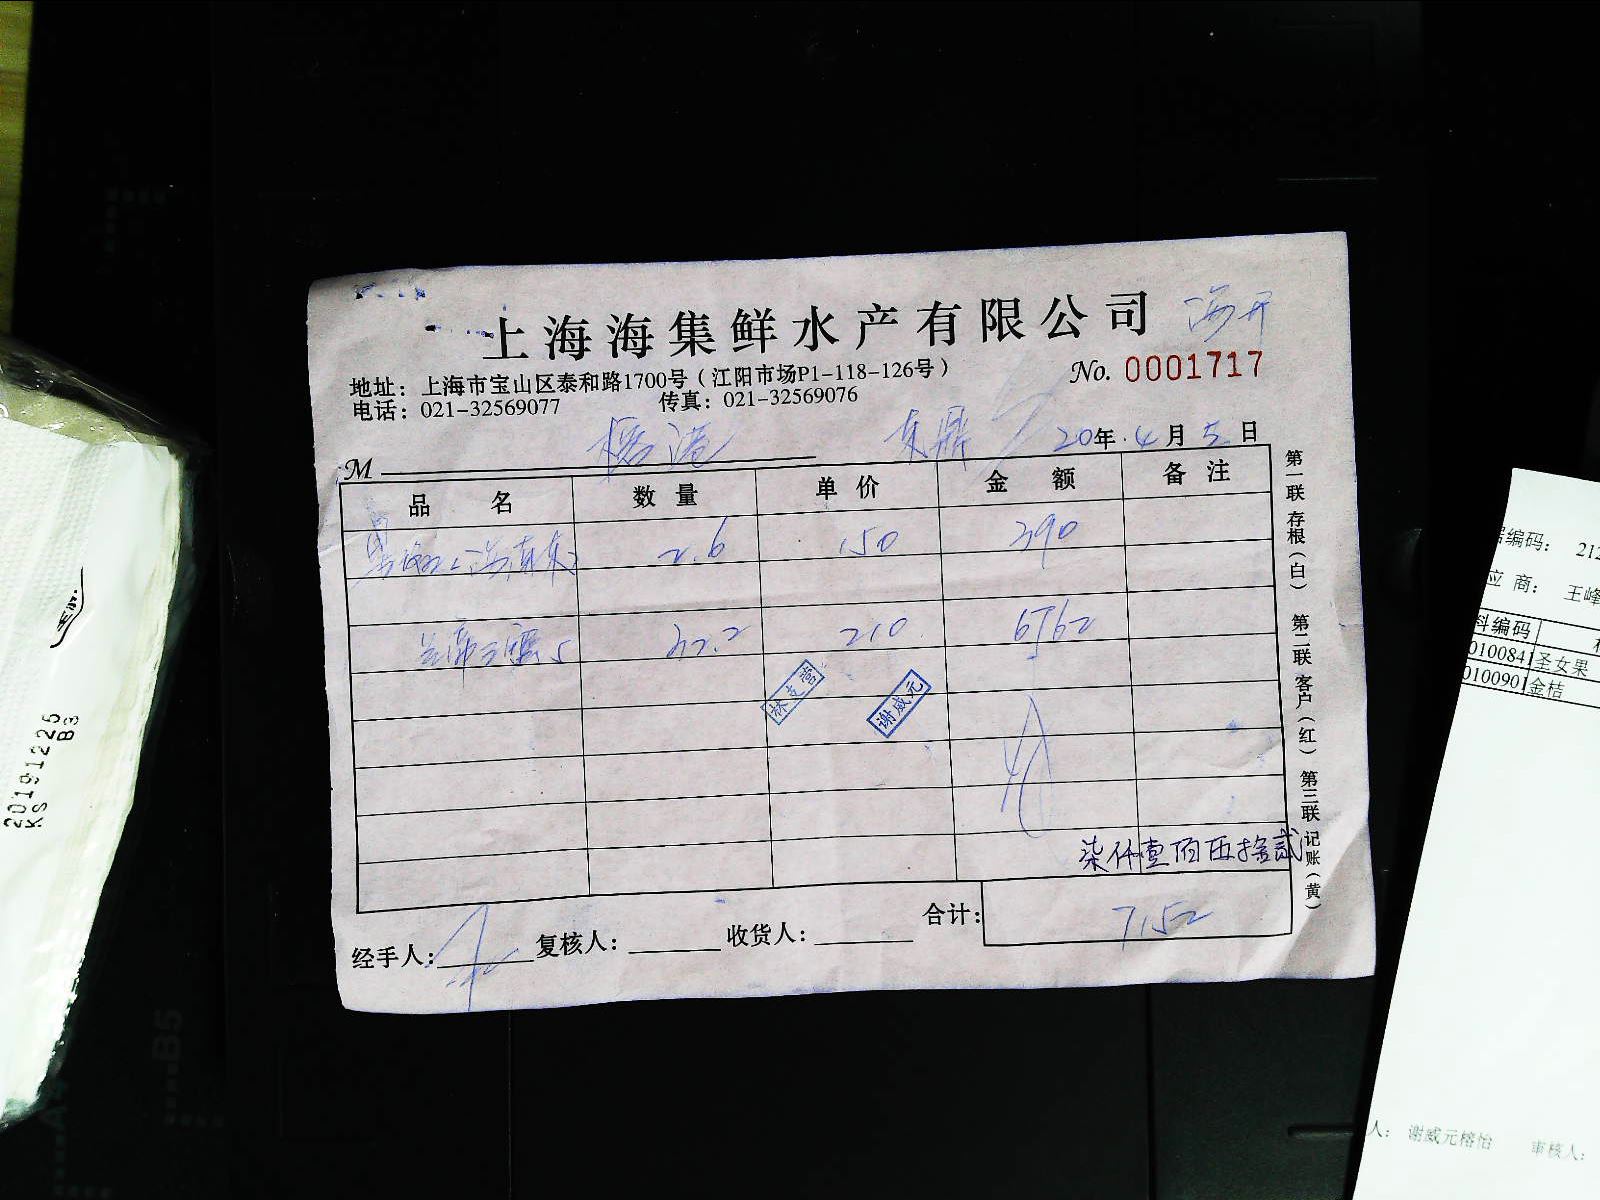 上海海集鲜水产有限公司
No. 0001717
地址：上海市宝山区泰和路1700号（江阳市场P1-118-126号）
电话：021-32569077 传真：021-32569076
M 榕港 东鼎 20年4月5日
品名 数量 单价 金额 备注
2.6 150 390
32.2 210 6762
林志营 谢威元
柒仟壹佰伍拾贰
合计：7152
经手人： 复核人： 收货人：
第一联 存根（白） 第二联 客户（红） 第三联 记账（黄）
20191225
KS B3
B5
编码： 212
应商： 王峰
料编码
0100841 圣女果
0100901 金桔
人： 谢威元榕怡 审核人：